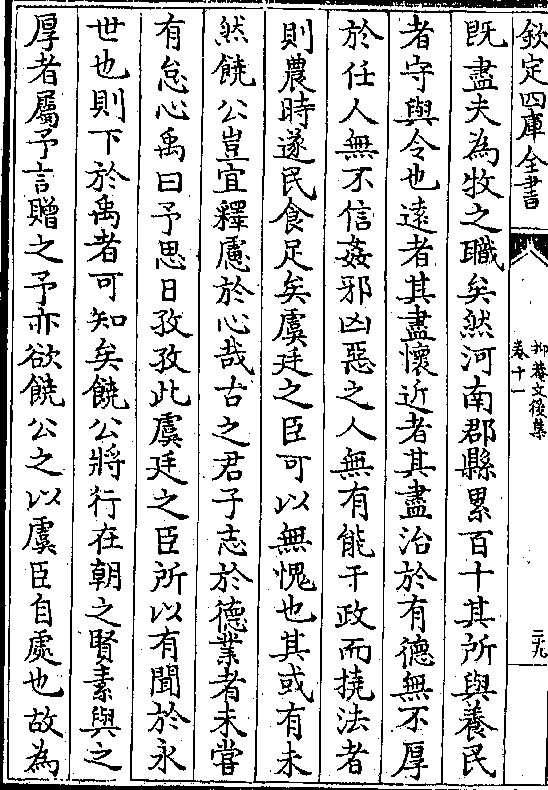 欽定四庫全書
抑菴文後集
卷十一
二十九
既盡夫為牧之職矣然河南郡縣累百十其所與養民
者守與令也遠者其盡懷近者其盡治於有德無不厚
於任人無不信姦邪凶惡之人無有能干政而撓法者
則農時遂民食足矣虞廷之臣可以無愧也其或有未
然饒公豈宜釋慮於心哉古之君子志於德業者未嘗
有怠心禹曰予思日孜孜此虞廷之臣所以有聞於永
世也則下於禹者可知矣饒公將行在朝之賢素與之
厚者屬予言贈之予亦欲饒公之以虞臣自處也故為